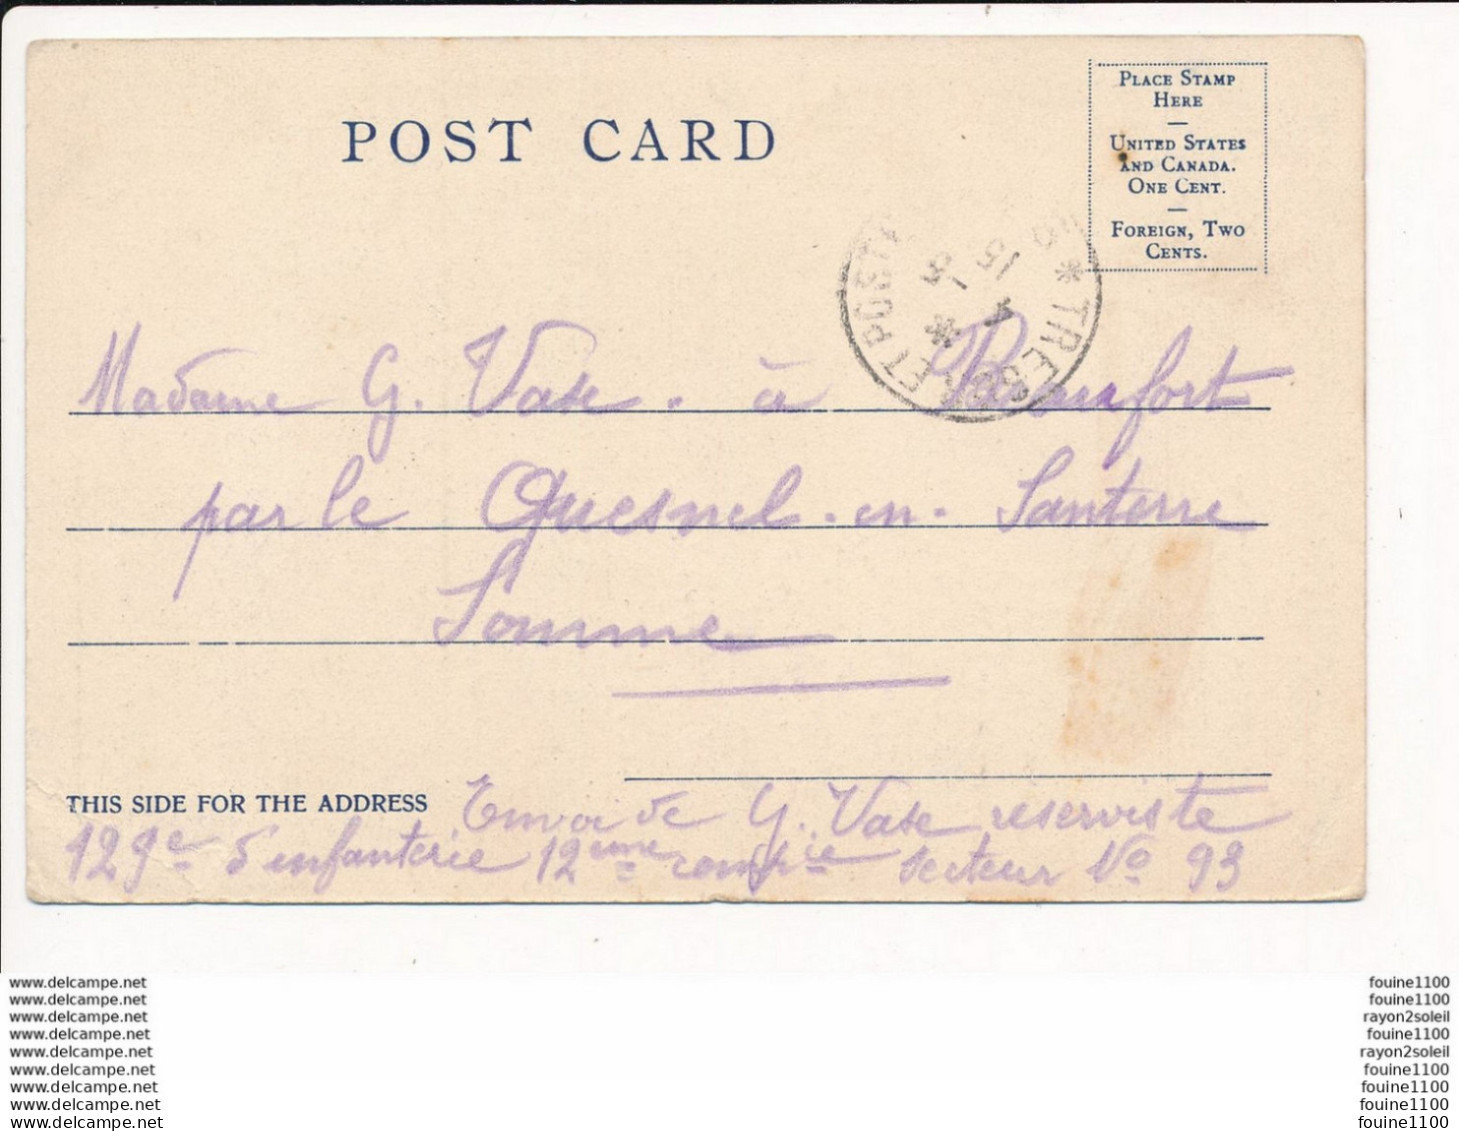 PLACE STAMP
HERE
—
UNITED STATES
AND CANADA.
ONE CENT.
—
FOREIGN, TWO
CENTS.
POST CARD
TRESOR ET POSTES
Madame G. Vase. à Beaufort
par le Quesnel-en-Santerre
Somme
THIS SIDE FOR THE ADDRESS
Envoi de G. Vase réserviste
129e d'infanterie 12eme compie secteur No 93
www.delcampe.net
www.delcampe.net
www.delcampe.net
www.delcampe.net
www.delcampe.net
www.delcampe.net
www.delcampe.net
www.delcampe.net
www.delcampe.net
fouine1100
fouine1100
rayon2soleil
fouine1100
rayon2soleil
fouine1100
fouine1100
fouine1100
fouine1100